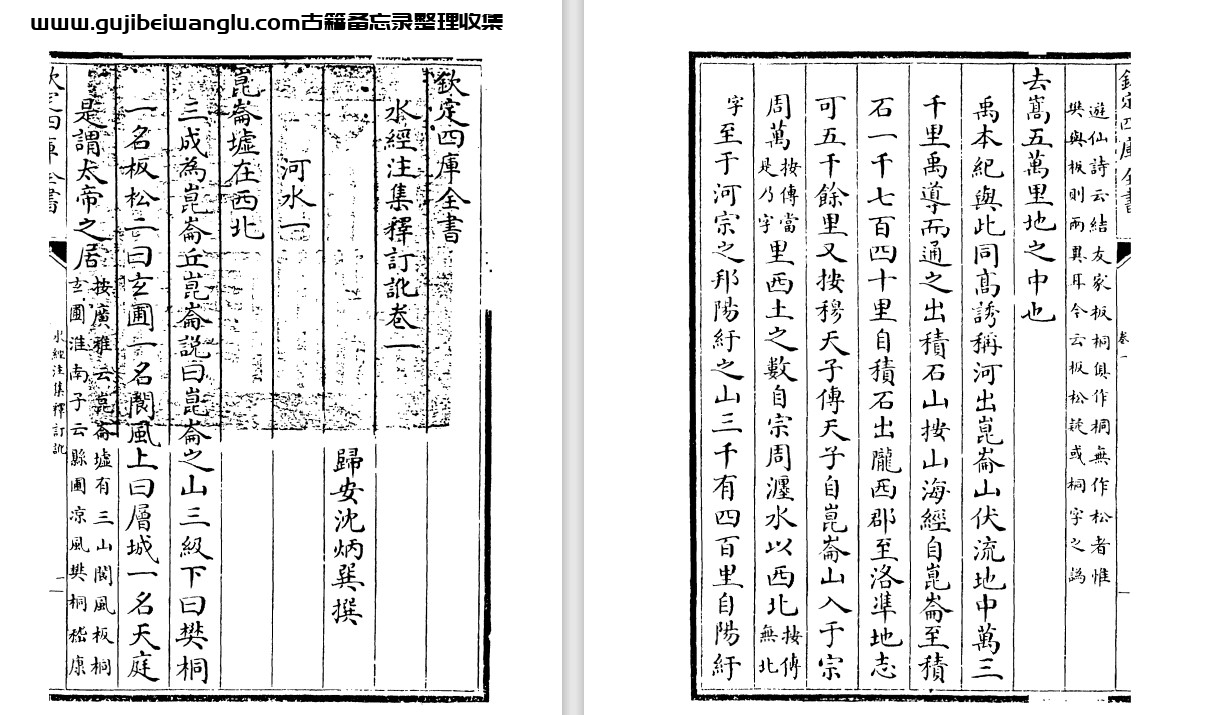 www.gujibeiwanglu.com古籍备忘录整理收集
欽定四庫全書
水經注集釋訂訛卷一
歸安沈炳巽撰
河水一
崑崙墟在西北
三成為崑崙丘崑崙說曰崑崙之山三級下曰樊桐
一名板松二曰玄圃一名閬風上曰層城一名天庭
是謂太帝之居按廣雅云崑崙墟有三山閬風板桐
玄圃淮南子云縣圃凉風樊桐嵇康
欽定四庫全書
水經注集釋訂訛
一
欽定四庫全書
卷一
遊仙詩云結友家板桐俱作桐無作松者惟
樊與板則兩異耳今云板松疑或桐字之譌
去嵩五萬里地之中也
禹本紀與此同高誘稱河出崑崙山伏流地中萬三
千里禹導而通之出積石山按山海經自崑崙至積
石一千七百四十里自積石出隴西郡至洛準地志
可五千餘里又按穆天子傳天子自崑崙山入于宗
周萬按傳當
是乃字里西土之數自宗周瀍水以西北按傳
無北
字至于河宗之邦陽紆之山三千有四百里自陽紆